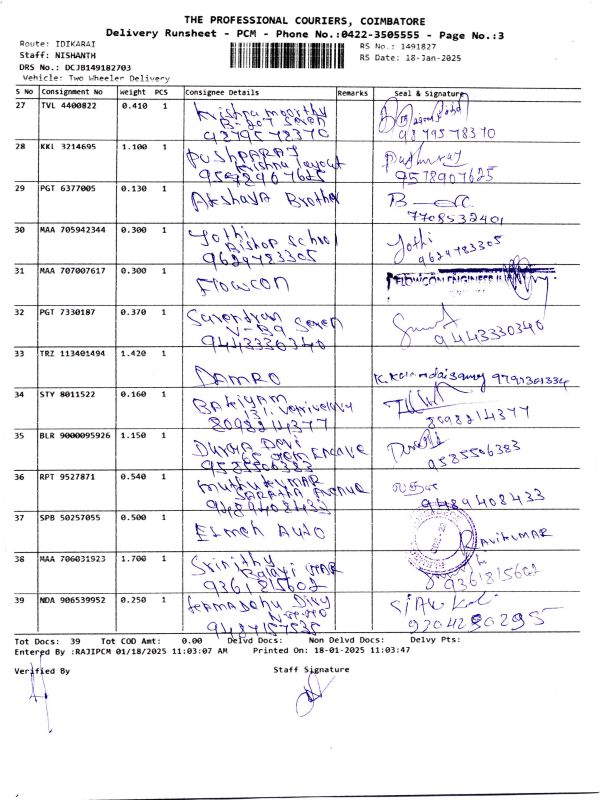 THE PROFESSIONAL COURIERS, COIMBATORE
Delivery Runsheet - PCM - Phone No.:0422-3505555 - Page No.:3
Route: IDIKARAI
RS No.: 1491827
Staff: NISHANTH
RS Date: 18-Jan-2025
DRS No.: DCJB149182703
Vehicle: Two Wheeler Delivery
S No Consignment No Weight PCS Consignee Details Remarks Seal & Signature
27 TVL 4400822 0.410 1 Krishna moorthy
9879578370 9879578370
28 KKL 3214695 1.100 1 PUSHPARAJ
Krishna layout
9578907625 9578907625
29 PGT 6377005 0.130 1 Akshaya Brother
7708532401
30 MAA 705942344 0.300 1 Jothi Jothi
Bishop School
9629783305 9629783305
31 MAA 707007617 0.300 1 Flowcon FLOWCON ENGINEER
32 PGT 7330187 0.370 1 Surendran
9443330340 9443330340
33 TRZ 113401494 1.420 1 DAMRO
34 STY 8011522 0.160 1 BAKIYAM
8098214377 8098214377
35 BLR 9000095926 1.150 1 Durga Devi
9585506383 9585506383
36 RPT 9527871 0.540 1 Muthukumar
9489408433 9489408433
37 SPB 50257055 0.500 1 Auto RAVIKUMAR
38 MAA 706031923 1.700 1 Srinithy
9361815602 9361815602
39 NDA 906539952 0.250 1
9487157535 9304290295
Tot Docs: 39 Tot COD Amt: 0.00 Delvd Docs: Non Delvd Docs: Delvy Pts:
Entered By :RAJIPCM 01/18/2025 11:03:07 AM Printed On: 18-01-2025 11:03:47
Verified By Staff Signature